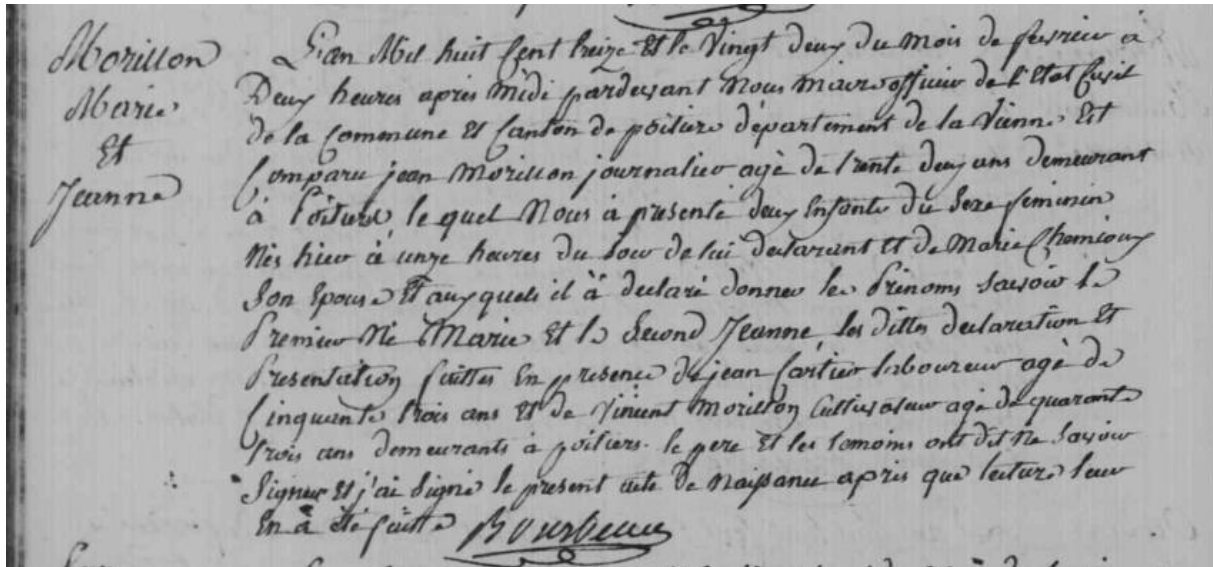 Morillon
Marie
Et
Jeanne
L'an Mil huit Cent treize Et le Vingt deux du Mois de fevrier à
Deux heures après Midi pardevant Nous Maire officier de l'Etat Civil
de la Commune Et Canton de département de la Vienne Est
Comparu jean Morillon journalier agé de trente deux ans demeurant
à lequel Nous à presenté deux Enfants du Sexe feminin
Nés hier à unze heures du Soir de lui declarant et de Marie
Son Epouse Et auxquels il à declaré donner les Prenoms Savoir le
Premier Né Marie Et le Second Jeanne, les dittes declaration Et
Presentation faittes En presence de jean Cartier laboureur agé de
Cinquante trois ans et de Vincent Morillon Cultivateur agé de quarante
trois ans demeurants à poitiers. le pere Et les temoins ont dit Ne Savoir
Signer Et j'ai Signé le present acte de Naissance après que lecture leur
En à été faitte